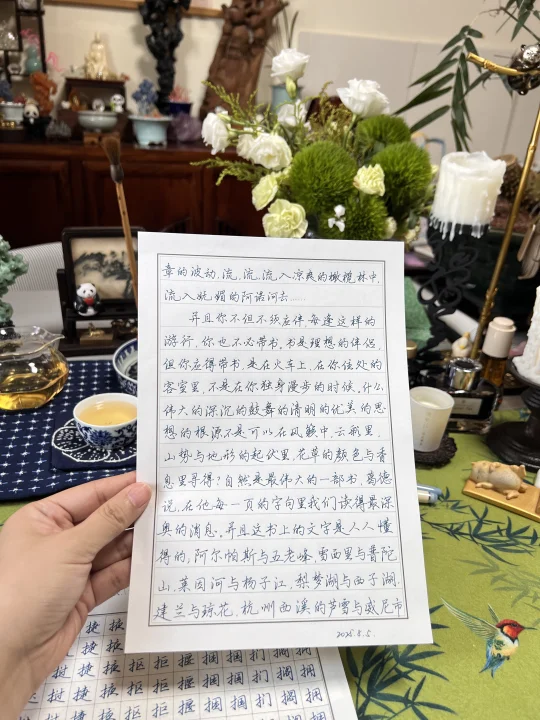 章的波动,流,流,流入凉爽的橄榄林中,
流入妩媚的阿诺河去……
并且你不但不须应伴,每逢这样的
游行,你也不必带书。书是理想的伴侣,
但你应得带书,是在火车上,在你住处的
客室里,不是在你独身漫步的时候。什么
伟大的深沉的鼓舞的清明的优美的思
想的根源不是可以在风籁中,云彩里,
山势与地形的起伏里,花草的颜色与香
息里寻得?自然是最伟大的一部书,葛德
说,在他每一页的字句里我们读得最深
奥的消息。并且这书上的文字是人人懂
得的,阿尔帕斯与五老峰,雪西里与普陀
山,莱因河与杨子江,梨梦湖与西子湖,
建兰与琼花,杭州西溪的芦雪与威尼市
2025.8.5.
捷
抠 抠 握 捆 捆 扪 搁